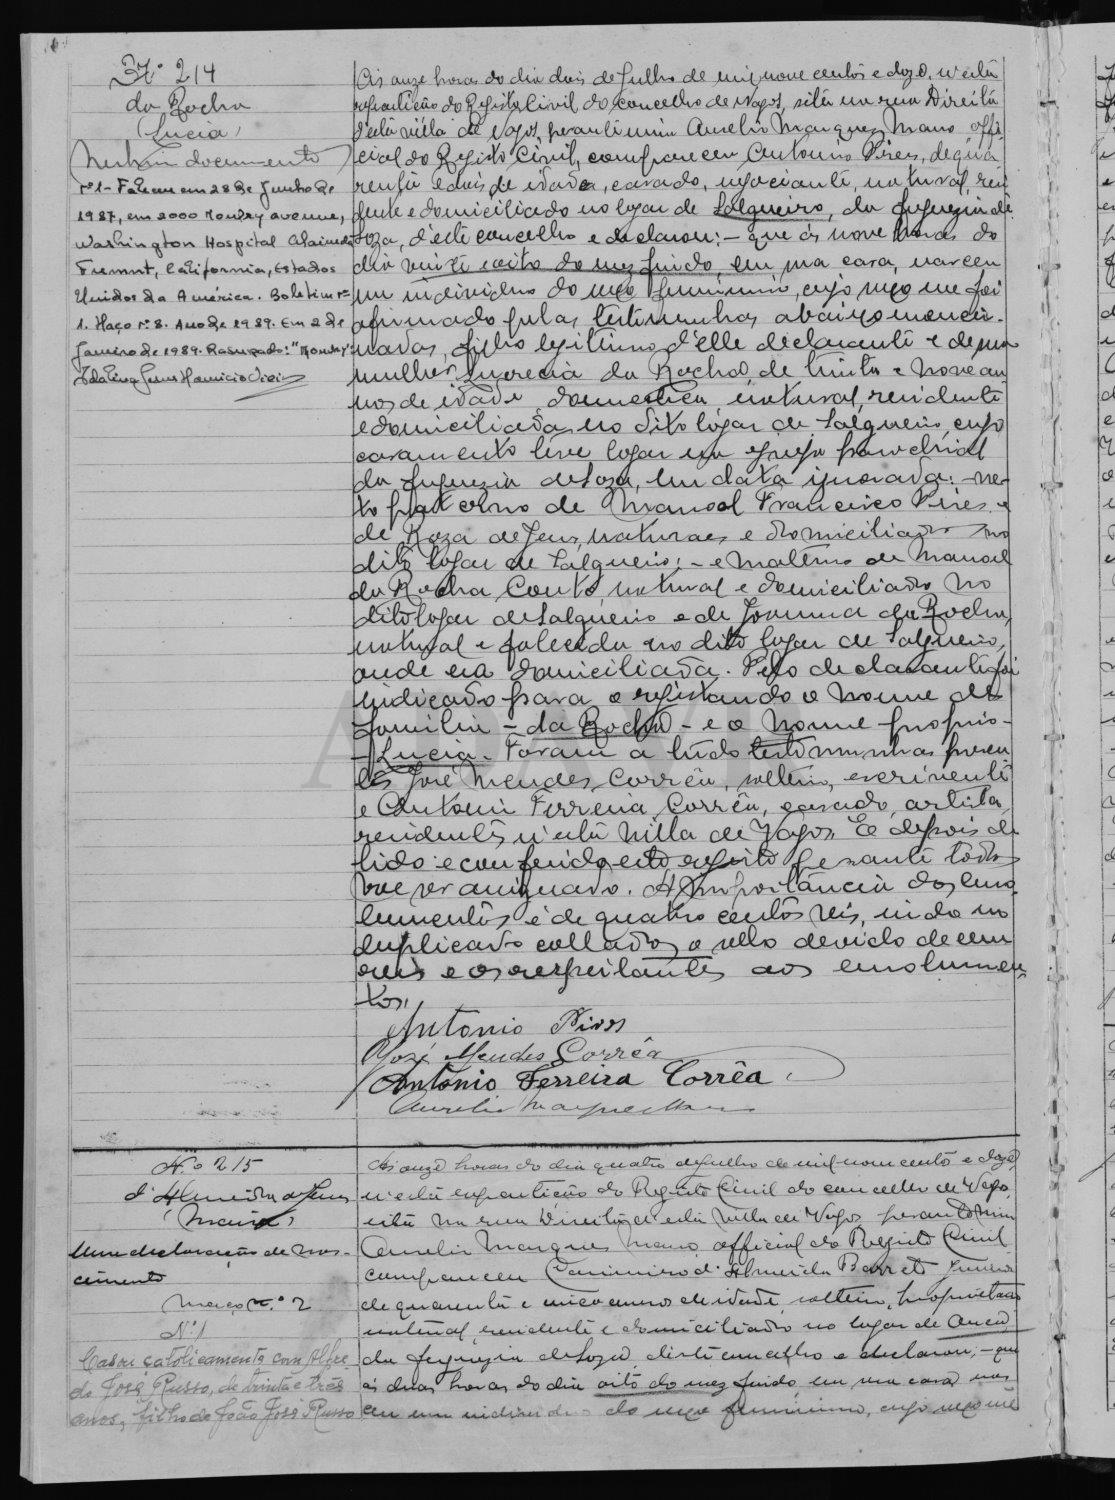 Nº 214
da Rocha
(Lucia)
Nenhum documento
nº1 - Faleceu em 28 de Junho de
1987, em 2000 Mowry avenue,
Washington Hospital Alameda
Fremont, California, Estados
Unidos da América. Boletim nº
1. Maço nº 8. Ano de 1989. Em 2 de
Janeiro de 1989. Rasurado: "Mowry"
Ás onze horas do dia dois de Julho de mil nove centos e doze, n'esta
repartição do Registo Civil do concelho de Vagos, sita na rua Direita
d'esta villa de Vagos, perante mim Aurelio Marques Mano, offi-
cial do Registo Civil, compareceu Antonio Pires, de qua-
renta e dois de idade, casado, negociante, natural, resi-
dente e domiciliado no logar de Salgueiro, da freguezia de
Soza, d'este concelho e declarou: - que ás nove horas do
dia vinte e oito do mez findo, em uma casa, nasceu
um individuo do sexo feminino, cujo sexo me foi
afirmado pelas testemunhas abaixo mencio-
nadas, filho legitimo d'elle declarante e de sua
mulher Lucrecia da Rocha, de trinta e nove an-
nos de idade, domestica, natural, residente
e domiciliada no dito logar de Salgueiro, cujo
casamento teve logar na egreja parochial
da freguezia de Soza, em data ignorada: - ne-
to paterno de Manoel Francisco Pires e
de Roza de Jesus, naturaes e domiciliados no
dito logar de Salgueiro; - e materno de Manoel
da Rocha Couto, natural e domiciliado no
dito logar de Salgueiro e de Joanna da Rocha,
natural e falecida no dito logar de Salgueiro,
onde era domiciliada. Pelo declarante foi
indicado para o registando o nome de
familia - da Rocha - e o nome proprio -
- Lucia. Foram a tudo testemunhas presen-
tes José Mendes Corrêa, solteiro, escrevente
e Antonio Ferreira Corrêa, casado, artista,
residentes n'esta villa de Vagos. E depois de
lido e conferido este registo perante todos
vae ser assignado. A importancia dos emo-
lumentos é de quatro centos reis, indo no
duplicado collados o sello devido de cem
reis e os respeitantes aos emolumen-
tos.
Antonio Pires
José Mendes Corrêa
Antonio Ferreira Corrêa
Aurelio Marques Mano
N.º 215
d'Almeida e Jesus
(Maria)
Uma declaração de nas-
cimento
Maço n.º 2
Nº 1
Casou catolicamente com Alfre-
do José Russo, de trinta e três
anos, filho de João José Russo
Ás onze horas do dia quatro de Julho de mil nove centos e doze,
n'esta repartição do Registo Civil do concelho de Vagos,
sita na rua Direita d'esta villa de Vagos perante mim
Aurelio Marques Mano, official do Registo Civil
compareceu Casimiro d'Almeida Barreto Junior
de quarenta e cinco annos de idade, solteiro, proprietario
natural, residente e domiciliado no logar de
da freguezia de Soza, d'este concelho e declarou: - que
ás duas horas do dia oito do mez findo, em uma casa nas-
ceu um individuo do sexo feminino, cujo sexo me